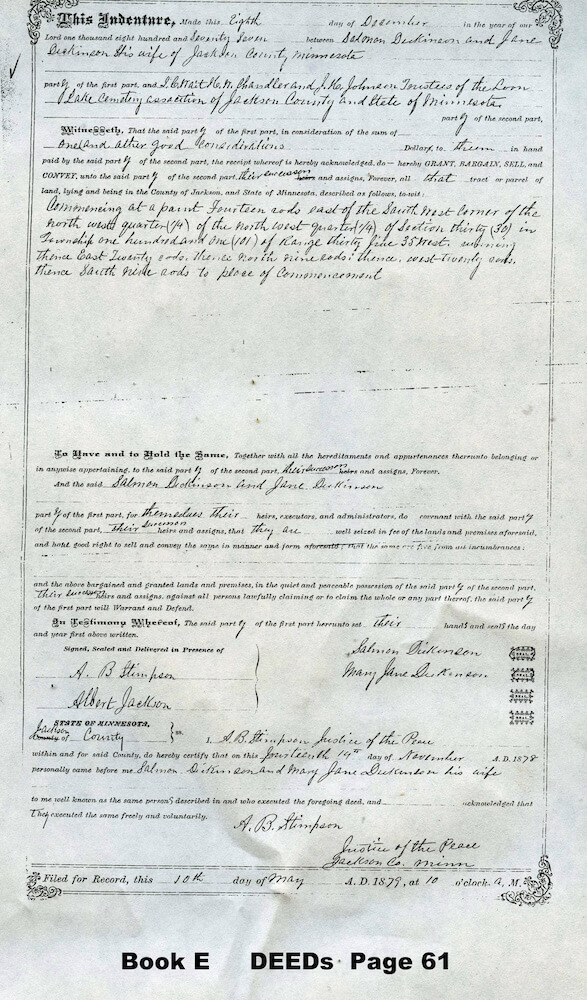 This Indenture, Made this Eighth day of December in the year of our
Lord one thousand eight hundred and Seventy Seven between Salmon Dickinson and Jane
Dickinson His wife of Jackson County Minnesota
party of the first part, and H. W. Chandler and J. H. Johnson Trustees of the Loon
Lake Cemetery association of Jackson County and State of Minnesota
party of the second part,
Witnesseth, That the said party of the first part, in consideration of the sum of
One and other good considerations Dollars, to them in hand
paid by the said party of the second part, the receipt whereof is hereby acknowledged, do hereby GRANT, BARGAIN, SELL, and
CONVEY, unto the said party of the second part, their successors heirs and assigns, Forever, all that tract or parcel of
land, lying and being in the County of Jackson, and State of Minnesota, described as follows, to-wit:
Commencing at a point Fourteen rods east of the South West Corner of the
North west quarter (1/4) of the North West Quarter (1/4) of Section thirty (30) in
Township one hundred and one (101) of Range thirty five 35 West. running
thence East Twenty rods, thence North nine rods, thence, west twenty rods,
thence South nine rods to place of Commencement
To Have and to Hold the Same, Together with all the hereditaments and appurtenances thereunto belonging or
in anywise appertaining, to the said party of the second part, their successors heirs and assigns, Forever.
And the said Salmon Dickinson and Jane Dickinson
party of the first part, for themselves their heirs, executors, and administrators, do covenant with the said party
of the second part, their successors heirs and assigns, that they are well seized in fee of the lands and premises aforesaid,
and have good right to sell and convey the same in manner and form aforesaid; that the same are free from all incumbrances;
and the above bargained and granted lands and premises, in the quiet and peaceable possession of the said party of the second part,
their successors heirs and assigns, against all persons lawfully claiming or to claim the whole or any part thereof, the said party
of the first part will Warrant and Defend.
In Testimony Whereof, The said party of the first part hereunto set their hands and seals the day
and year first above written.
Signed, Sealed and Delivered in Presence of
A. B Stimpson
Albert Jackson
Salmon Dickinson SEAL
Mary Jane Dickinson SEAL
SEAL
SEAL
STATE OF MINNESOTA,
Jackson
County of County ss.
I, A. B. Stimpson Justice of the Peace
within and for said County, do hereby certify that on this fourteenth 14th day of November A. D. 1878
personally came before me Salmon Dickinson and Mary Jane Dickinson his wife
to me well known as the same persons described in and who executed the foregoing deed, and acknowledged that
They executed the same freely and voluntarily.
A. B. Stimpson
Justice of the Peace
Jackson Co. Minn
Filed for Record, this 10th day of May A. D. 1879, at 10 o'clock. A. M.
Book E DEEDs Page 61